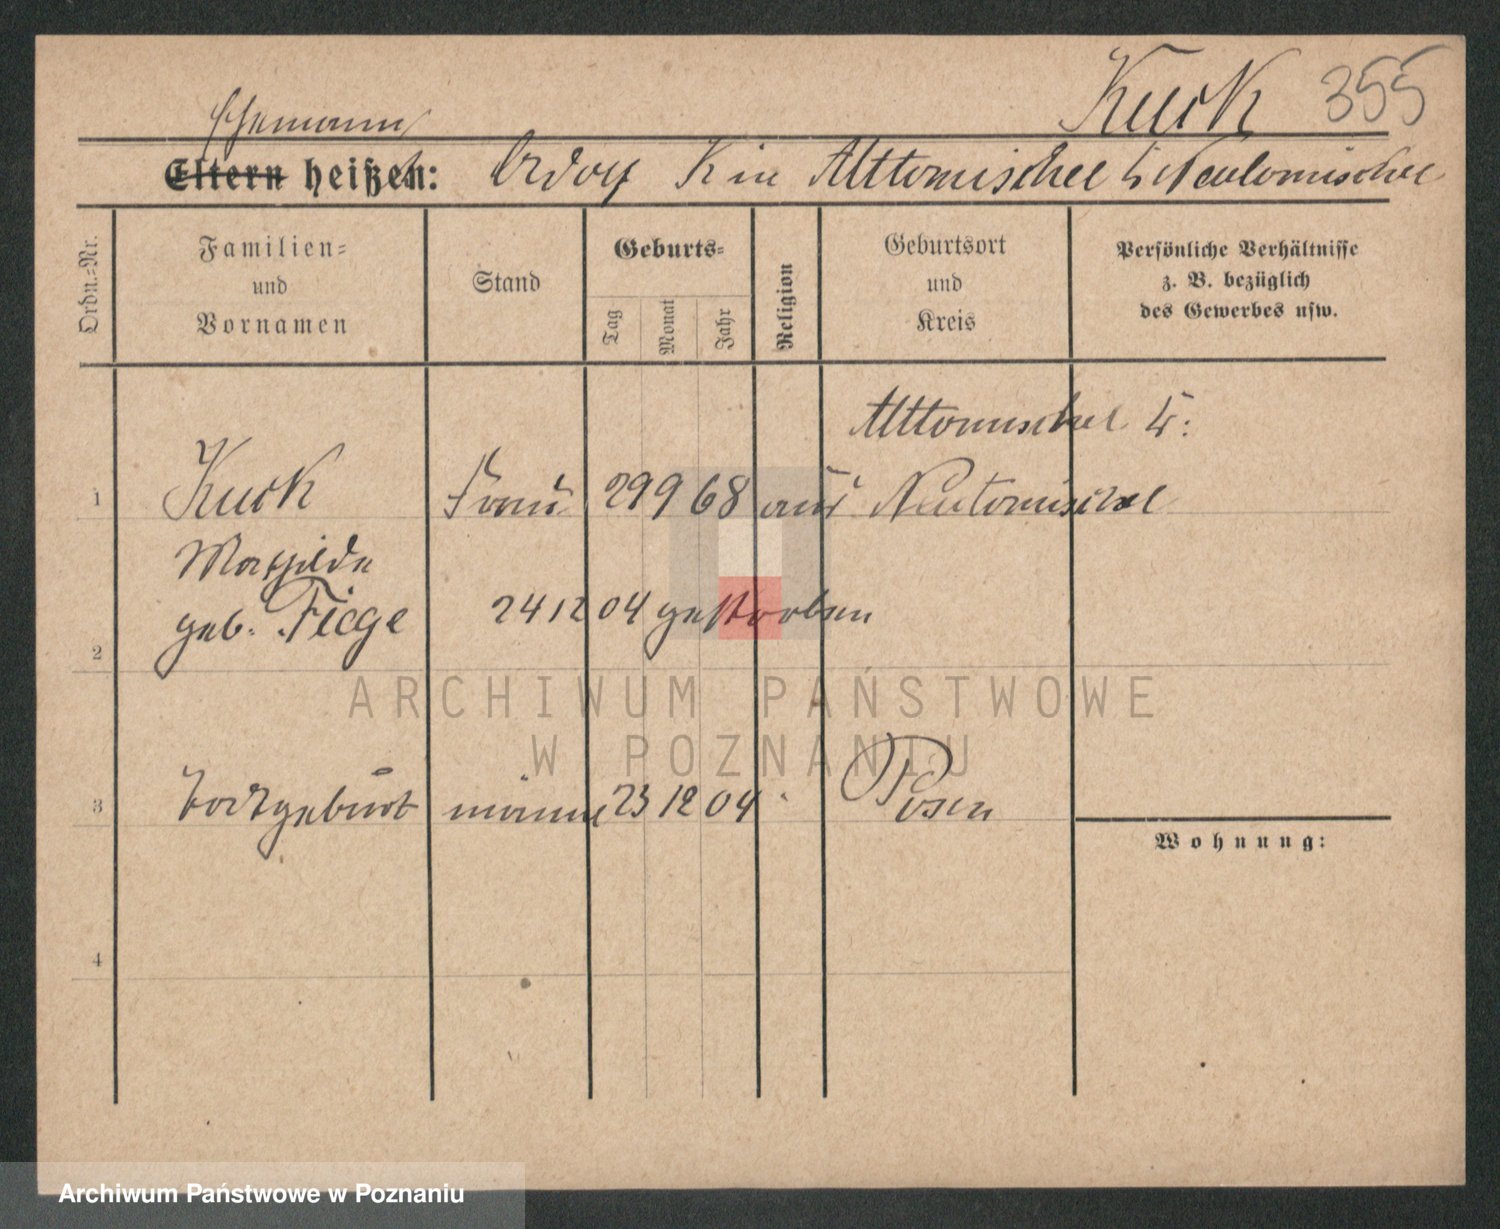 Kuck 355
Ehemann
Eltern heißen: Adolf K in Alttomischel b Neutomischel
Ordn.-Nr.
Familien-
und
Vornamen
Stand
Geburts-
Tag
Monat
Jahr
Religion
Geburtsort
und
Kreis
Persönliche Verhältnisse
z. B. bezüglich
des Gewerbes usw.
Alttomischel b:
1 Kuck Frau 29 9 68 aus Neutomischel
Mathilde
geb. Fiege 24 12 04 gestorben
2
ARCHIWUM PAŃSTWOWE
W POZNANIU
3 Todtgeburt männl 23 12 04 Posen
Wohnung:
4
Archiwum Państwowe w Poznaniu